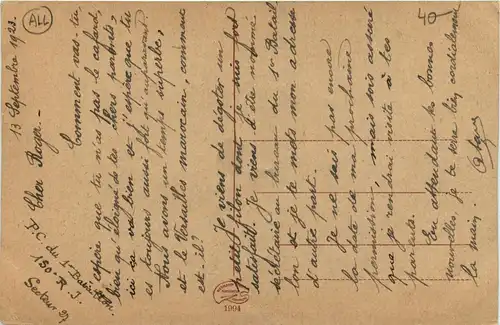 ALL
40
13 Septembre 1923.
Cher Roger -
P.C. du 1er Bataillon.
150e R.I.
Secteur 97
Comment vas-tu,
j'espère que tu n'as pas le cafard,
bien qu'éloigné de tes chers parents,
ici ça va bien et j'espère que tu
es toujours aussi fort qu'auparavant
Nous avons un temps superbe,
et le Versailles marocain, comment
est-il?
Je viens de dégoter un
petit filon dont je suis fort
satisfait. Je viens d'être nommé
secrétaire au bureau du 1er Batail-
lon et je te mets mon adresse
d'autre part.
Je ne sais pas encore
la date de ma prochaine
permission, mais sois assuré
que je rendrai visite à tes
parents.
En attendant tes bonnes
nouvelles, je te serre bien cordialement
la main.
1994